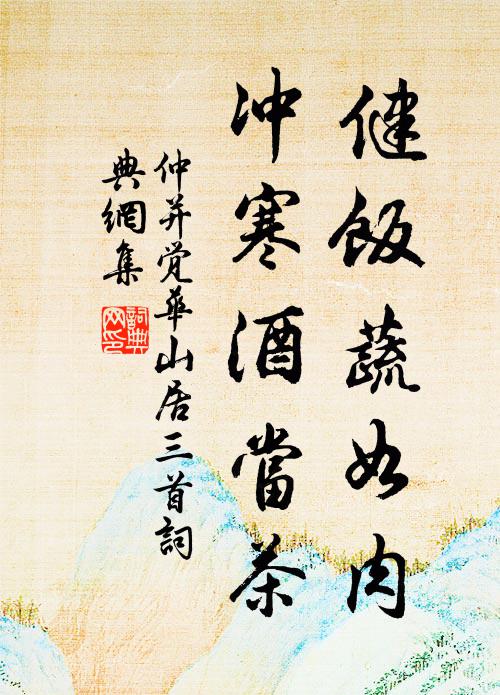 健飯蔬如肉
冲寒酒當茶
仲并觉華山居三首詞
典網集
詞典网印